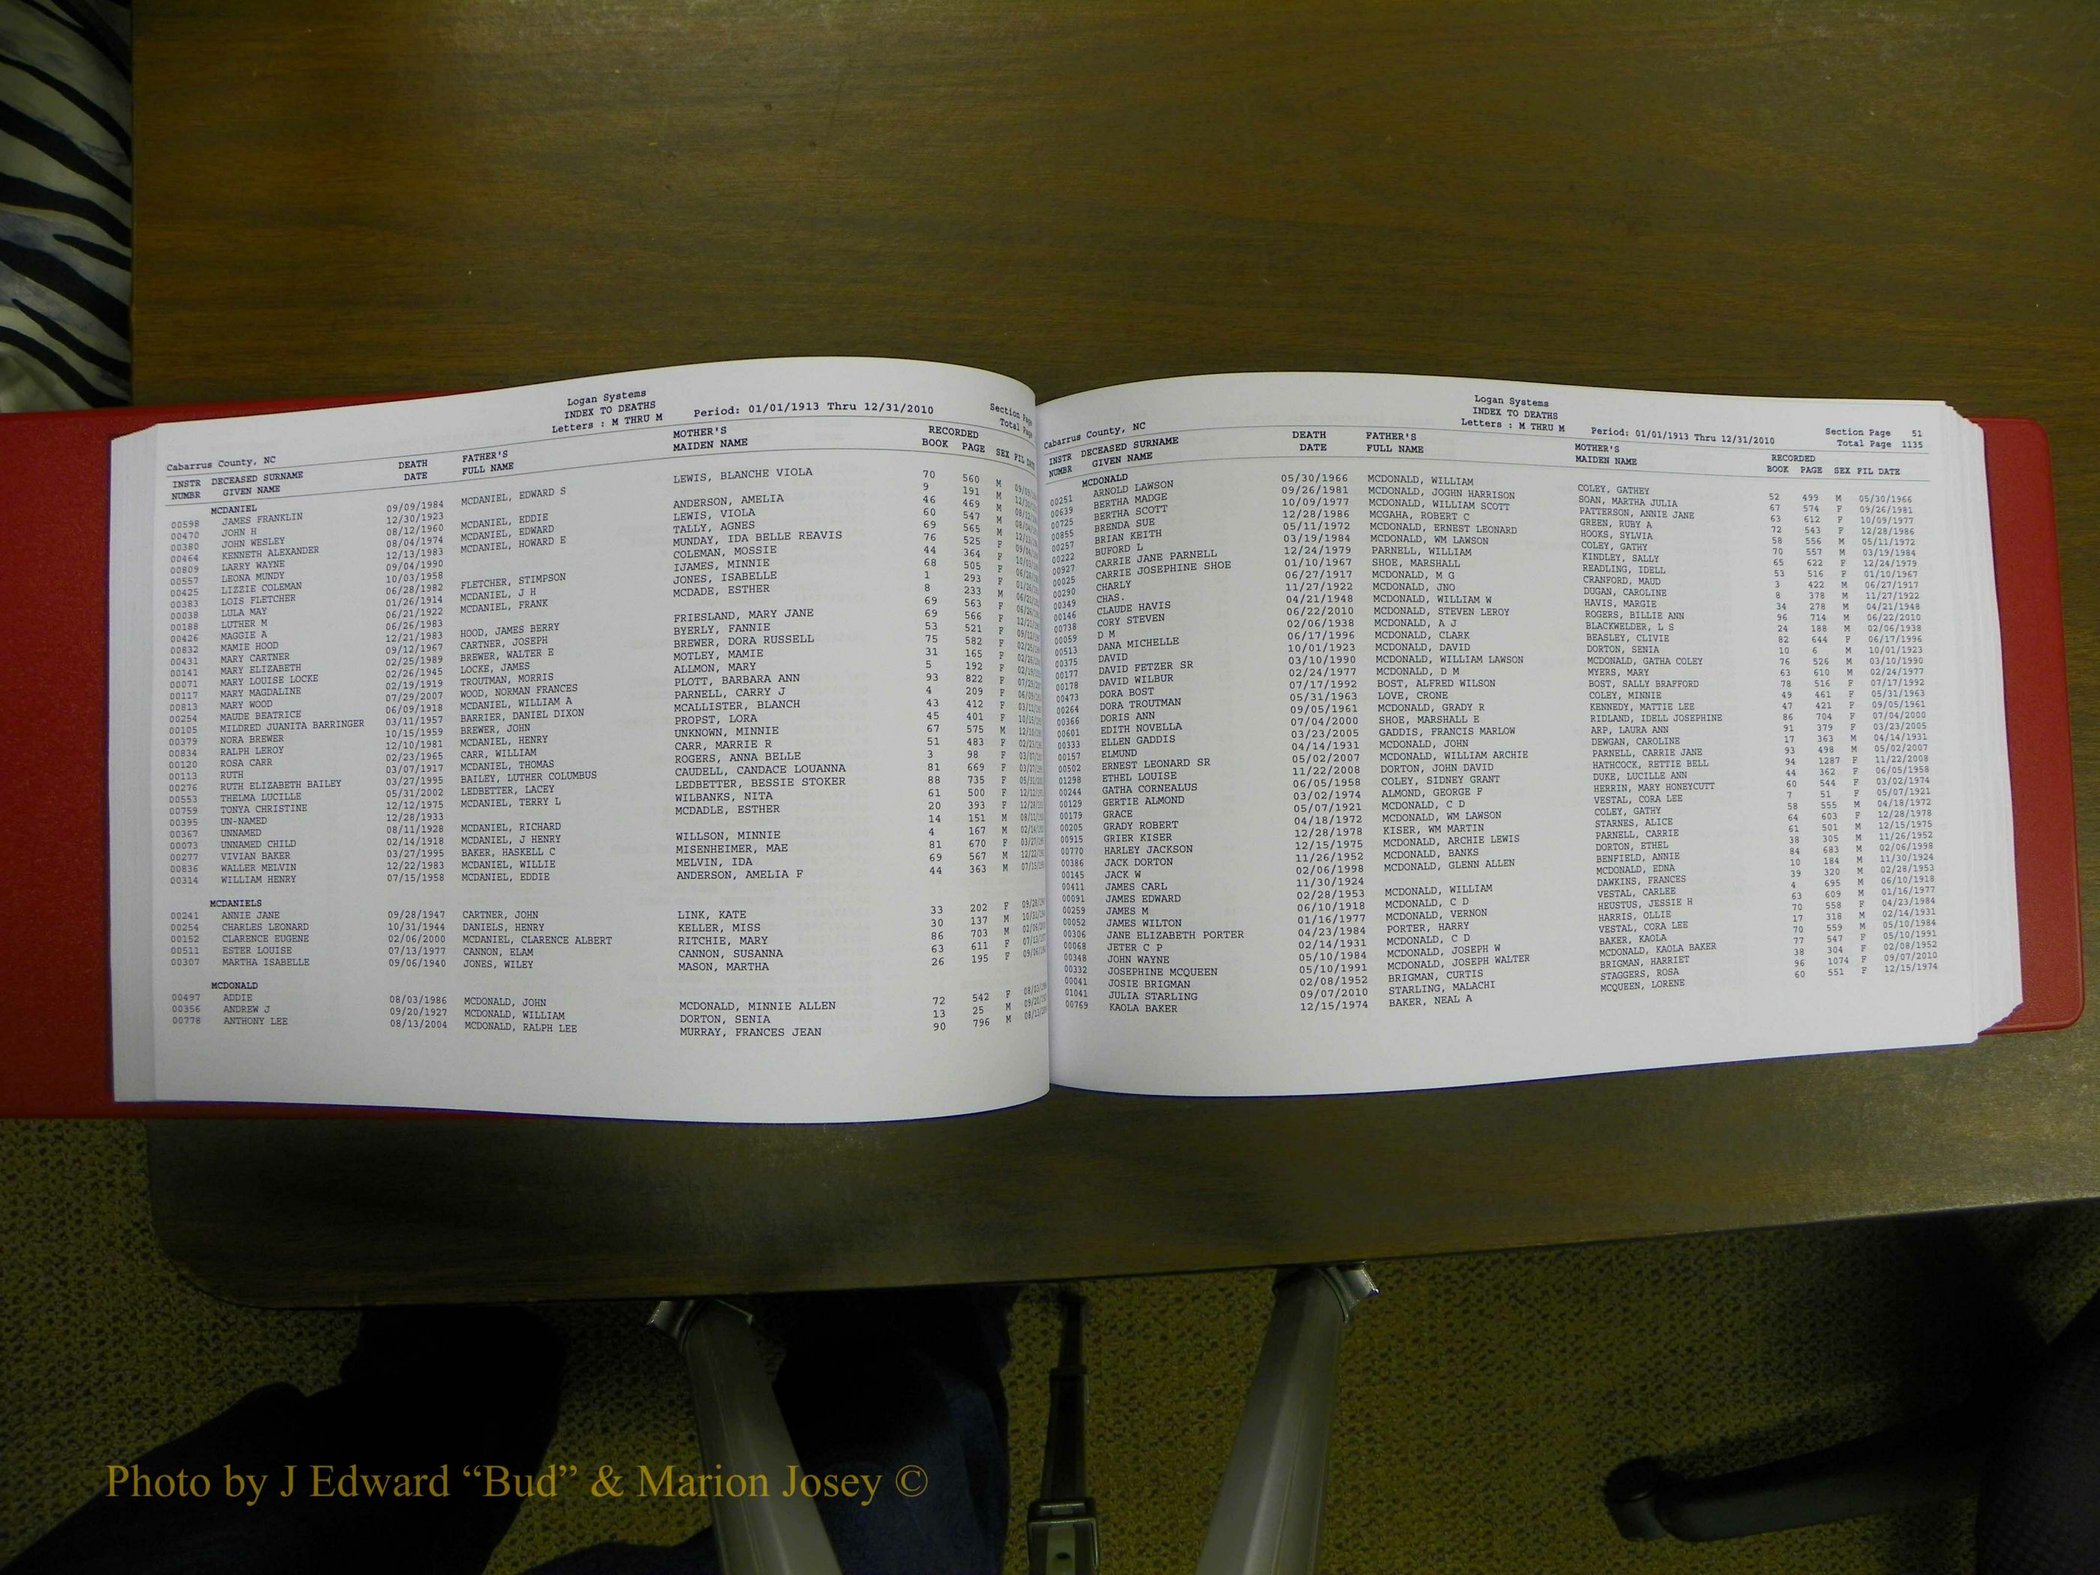 Logan Systems
INDEX TO DEATHS
Letters : M THRU M Period: 01/01/1913 Thru 12/31/2010 Section Page
Total Page
Cabarrus County, NC
INSTR NUMBR DECEASED SURNAME GIVEN NAME DEATH DATE FATHER'S FULL NAME MOTHER'S MAIDEN NAME RECORDED BOOK PAGE SEX FIL DATE
MCDANIEL
00598 JAMES FRANKLIN 09/09/1984 MCDANIEL, EDWARD S LEWIS, BLANCHE VIOLA 70 560 M
00470 JOHN H 12/30/1923 9 191 M
00380 JOHN WESLEY 08/12/1960 MCDANIEL, EDDIE ANDERSON, AMELIA 46 469 M
00464 KENNETH ALEXANDER 08/04/1974 MCDANIEL, EDWARD LEWIS, VIOLA 60 547 M
00809 LARRY WAYNE 12/13/1983 MCDANIEL, HOWARD E TALLY, AGNES 69 565 M
00557 LEONA MUNDY 09/04/1990 MUNDAY, IDA BELLE REAVIS 76 525 F
00425 LIZZIE COLEMAN 10/03/1958 COLEMAN, MOSSIE 44 364 F
00383 LOIS FLETCHER 06/28/1982 FLETCHER, STIMPSON IJAMES, MINNIE 68 505 F
00038 LULA MAY 01/26/1914 MCDANIEL, J H JONES, ISABELLE 1 293 F
00188 LUTHER M 06/21/1922 MCDANIEL, FRANK MCDADE, ESTHER 8 233 M
00426 MAGGIE A 06/26/1983 69 563 F
00832 MAMIE HOOD 12/21/1983 HOOD, JAMES BERRY FRIESLAND, MARY JANE 69 566 F
00431 MARY CARTNER 09/12/1967 CARTNER, JOSEPH BYERLY, FANNIE 53 521 F
00141 MARY ELIZABETH 02/25/1989 BREWER, WALTER E BREWER, DORA RUSSELL 75 582 F
00071 MARY LOUISE LOCKE 02/26/1945 LOCKE, JAMES MOTLEY, MAMIE 31 165 F
00117 MARY MAGDALINE 02/19/1919 TROUTMAN, MORRIS ALLMON, MARY 5 192 F
00813 MARY WOOD 07/29/2007 WOOD, NORMAN FRANCES PLOTT, BARBARA ANN 93 822 F
00254 MAUDE BEATRICE 06/09/1918 MCDANIEL, WILLIAM A PARNELL, CARRY J 4 209 F
00105 MILDRED JUANITA BARRINGER 03/11/1957 BARRIER, DANIEL DIXON MCALLISTER, BLANCH 43 412 F
00379 NORA BREWER 10/15/1959 BREWER, JOHN PROPST, LORA 45 401 F
00834 RALPH LEROY 12/10/1981 MCDANIEL, HENRY UNKNOWN, MINNIE 67 575 M
00120 ROSA CARR 02/23/1965 CARR, WILLIAM CARR, MARRIE R 51 483 F
00113 RUTH 03/07/1917 MCDANIEL, THOMAS ROGERS, ANNA BELLE 3 98 F
00276 RUTH ELIZABETH BAILEY 03/27/1995 BAILEY, LUTHER COLUMBUS CAUDELL, CANDACE LOUANNA 81 669 F
00553 THELMA LUCILLE 05/31/2002 LEDBETTER, LACEY LEDBETTER, BESSIE STOKER 88 735 F
00759 TONYA CHRISTINE 12/12/1975 MCDANIEL, TERRY L WILBANKS, NITA 61 500 F
00395 UN-NAMED 12/28/1933 MCDADLE, ESTHER 20 393 F
00367 UNNAMED 08/11/1928 MCDANIEL, RICHARD 14 151 M
00073 UNNAMED CHILD 02/14/1918 MCDANIEL, J HENRY WILLSON, MINNIE 4 167 M
00277 VIVIAN BAKER 03/27/1995 BAKER, HASKELL C MISENHEIMER, MAE 81 670 F
00836 WALLER MELVIN 12/22/1983 MCDANIEL, WILLIE MELVIN, IDA 69 567 M
00314 WILLIAM HENRY 07/15/1958 MCDANIEL, EDDIE ANDERSON, AMELIA F 44 363 M
MCDANIELS
00241 ANNIE JANE 09/28/1947 CARTNER, JOHN LINK, KATE 33 202 F
00254 CHARLES LEONARD 10/31/1944 DANIELS, HENRY KELLER, MISS 30 137 M
00152 CLARENCE EUGENE 02/06/2000 MCDANIEL, CLARENCE ALBERT RITCHIE, MARY 86 703 M
00511 ESTER LOUISE 07/13/1977 CANNON, ELAM CANNON, SUSANNA 63 611 F
00307 MARTHA ISABELLE 09/06/1940 JONES, WILEY MASON, MARTHA 26 195 F
MCDONALD
00497 ADDIE 08/03/1986 MCDONALD, JOHN MCDONALD, MINNIE ALLEN 72 542 F
00356 ANDREW J 09/20/1927 MCDONALD, WILLIAM DORTON, SENIA 13 25 M
00778 ANTHONY LEE 08/13/2004 MCDONALD, RALPH LEE MURRAY, FRANCES JEAN 90 796 M
Logan Systems
INDEX TO DEATHS
Letters : M THRU M Period: 01/01/1913 Thru 12/31/2010 Section Page 51
Total Page 1135
Cabarrus County, NC
INSTR NUMBR DECEASED SURNAME GIVEN NAME DEATH DATE FATHER'S FULL NAME MOTHER'S MAIDEN NAME RECORDED BOOK PAGE SEX FIL DATE
MCDONALD
00251 ARNOLD LAWSON 05/30/1966 MCDONALD, WILLIAM COLEY, GATHEY 52 499 M 05/30/1966
00639 BERTHA MADGE 09/26/1981 MCDONALD, JOGHN HARRISON SOAN, MARTHA JULIA 67 574 F 09/26/1981
00725 BERTHA SCOTT 10/09/1977 MCDONALD, WILLIAM SCOTT PATTERSON, ANNIE JANE 63 612 F 10/09/1977
00855 BRENDA SUE 12/28/1986 MCGAHA, ROBERT C GREEN, RUBY A 72 543 F 12/28/1986
00257 BRIAN KEITH 05/11/1972 MCDONALD, ERNEST LEONARD HOOKS, SYLVIA 58 556 M 05/11/1972
00222 BUFORD L 03/19/1984 MCDONALD, WM LAWSON COLEY, GATHY 70 557 M 03/19/1984
00927 CARRIE JANE PARNELL 12/24/1979 PARNELL, WILLIAM KINDLEY, SALLY 65 622 F 12/24/1979
00025 CARRIE JOSEPHINE SHOE 01/10/1967 SHOE, MARSHALL READLING, IDELL 53 516 F 01/10/1967
00290 CHARLY 06/27/1917 MCDONALD, M G CRANFORD, MAUD 3 422 M 06/27/1917
00349 CHAS. 11/27/1922 MCDONALD, JNO DUGAN, CAROLINE 8 378 M 11/27/1922
00146 CLAUDE HAVIS 04/21/1948 MCDONALD, WILLIAM W HAVIS, MARGIE 34 278 M 04/21/1948
00738 CORY STEVEN 06/22/2010 MCDONALD, STEVEN LEROY ROGERS, BILLIE ANN 96 714 M 06/22/2010
00059 D M 02/06/1938 MCDONALD, A J BLACKWELDER, L S 24 188 M 02/06/1938
00513 DANA MICHELLE 06/17/1996 MCDONALD, CLARK BEASLEY, CLIVIE 82 644 F 06/17/1996
00375 DAVID 10/01/1923 MCDONALD, DAVID DORTON, SENIA 10 6 M 10/01/1923
00177 DAVID FETZER SR 03/10/1990 MCDONALD, WILLIAM LAWSON MCDONALD, GATHA COLEY 76 526 M 03/10/1990
00178 DAVID WILBUR 02/24/1977 MCDONALD, D M MYERS, MARY 63 610 M 02/24/1977
00473 DORA BOST 07/17/1992 BOST, ALFRED WILSON BOST, SALLY BRAFFORD 78 516 F 07/17/1992
00264 DORA TROUTMAN 05/31/1963 LOVE, CRONE COLEY, MINNIE 49 461 F 05/31/1963
00366 DORIS ANN 09/05/1961 MCDONALD, GRADY R KENNEDY, MATTIE LEE 47 421 F 09/05/1961
00601 EDITH NOVELLA 07/04/2000 SHOE, MARSHALL E RIDLAND, IDELL JOSEPHINE 86 704 F 07/04/2000
00333 ELLEN GADDIS 03/23/2005 GADDIS, FRANCIS MARLOW ARP, LAURA ANN 91 379 F 03/23/2005
00157 ELMUND 04/14/1931 MCDONALD, JOHN DEWGAN, CAROLINE 17 363 M 04/14/1931
00502 ERNEST LEONARD SR 05/02/2007 MCDONALD, WILLIAM ARCHIE PARNELL, CARRIE JANE 93 498 M 05/02/2007
01298 ETHEL LOUISE 11/22/2008 DORTON, JOHN DAVID HATHCOCK, RETTIE BELL 94 1287 F 11/22/2008
00244 GATHA CORNEALUS 06/05/1958 COLEY, SIDNEY GRANT DUKE, LUCILLE ANN 44 362 F 06/05/1958
00129 GERTIE ALMOND 03/02/1974 ALMOND, GEORGE F HERRIN, MARY HONEYCUTT 60 544 F 03/02/1974
00179 GRACE 05/07/1921 MCDONALD, C D VESTAL, CORA LEE 7 51 F 05/07/1921
00205 GRADY ROBERT 04/18/1972 MCDONALD, WM LAWSON COLEY, GATHY 58 555 M 04/18/1972
00915 GRIER KISER 12/28/1978 KISER, WM MARTIN STARNES, ALICE 64 603 F 12/28/1978
00770 HARLEY JACKSON 12/15/1975 MCDONALD, ARCHIE LEWIS PARNELL, CARRIE 61 501 M 12/15/1975
00386 JACK DORTON 11/26/1952 MCDONALD, BANKS DORTON, ETHEL 38 305 M 11/26/1952
00145 JACK W 02/06/1998 MCDONALD, GLENN ALLEN BENFIELD, ANNIE 84 683 M 02/06/1998
00411 JAMES CARL 11/30/1924 MCDONALD, EDNA 10 184 M 11/30/1924
00091 JAMES EDWARD 02/28/1953 MCDONALD, WILLIAM DAWKINS, FRANCES 39 320 M 02/28/1953
00259 JAMES M 06/10/1918 MCDONALD, C D VESTAL, CARLEE 4 695 M 06/10/1918
00052 JAMES WILTON 01/16/1977 MCDONALD, VERNON HEUSTUS, JESSIE H 63 609 M 01/16/1977
00306 JANE ELIZABETH PORTER 04/23/1984 PORTER, HARRY HARRIS, OLLIE 70 558 F 04/23/1984
00068 JETER C P 02/14/1931 MCDONALD, C D VESTAL, CORA LEE 17 318 M 02/14/1931
00348 JOHN WAYNE 05/10/1984 MCDONALD, JOSEPH W BAKER, KAOLA 70 559 M 05/10/1984
00332 JOSEPHINE MCQUEEN 05/10/1991 MCDONALD, JOSEPH WALTER MCDONALD, KAOLA BAKER 77 547 F 05/10/1991
00041 JOSIE BRIGMAN 02/08/1952 BRIGMAN, CURTIS BRIGMAN, HARRIET 38 304 F 02/08/1952
01041 JULIA STARLING 09/07/2010 STARLING, MALACHI STAGGERS, ROSA 96 1074 F 09/07/2010
00769 KAOLA BAKER 12/15/1974 BAKER, NEAL A MCQUEEN, LORENE 60 551 F 12/15/1974
Photo by J Edward “Bud” & Marion Josey ©